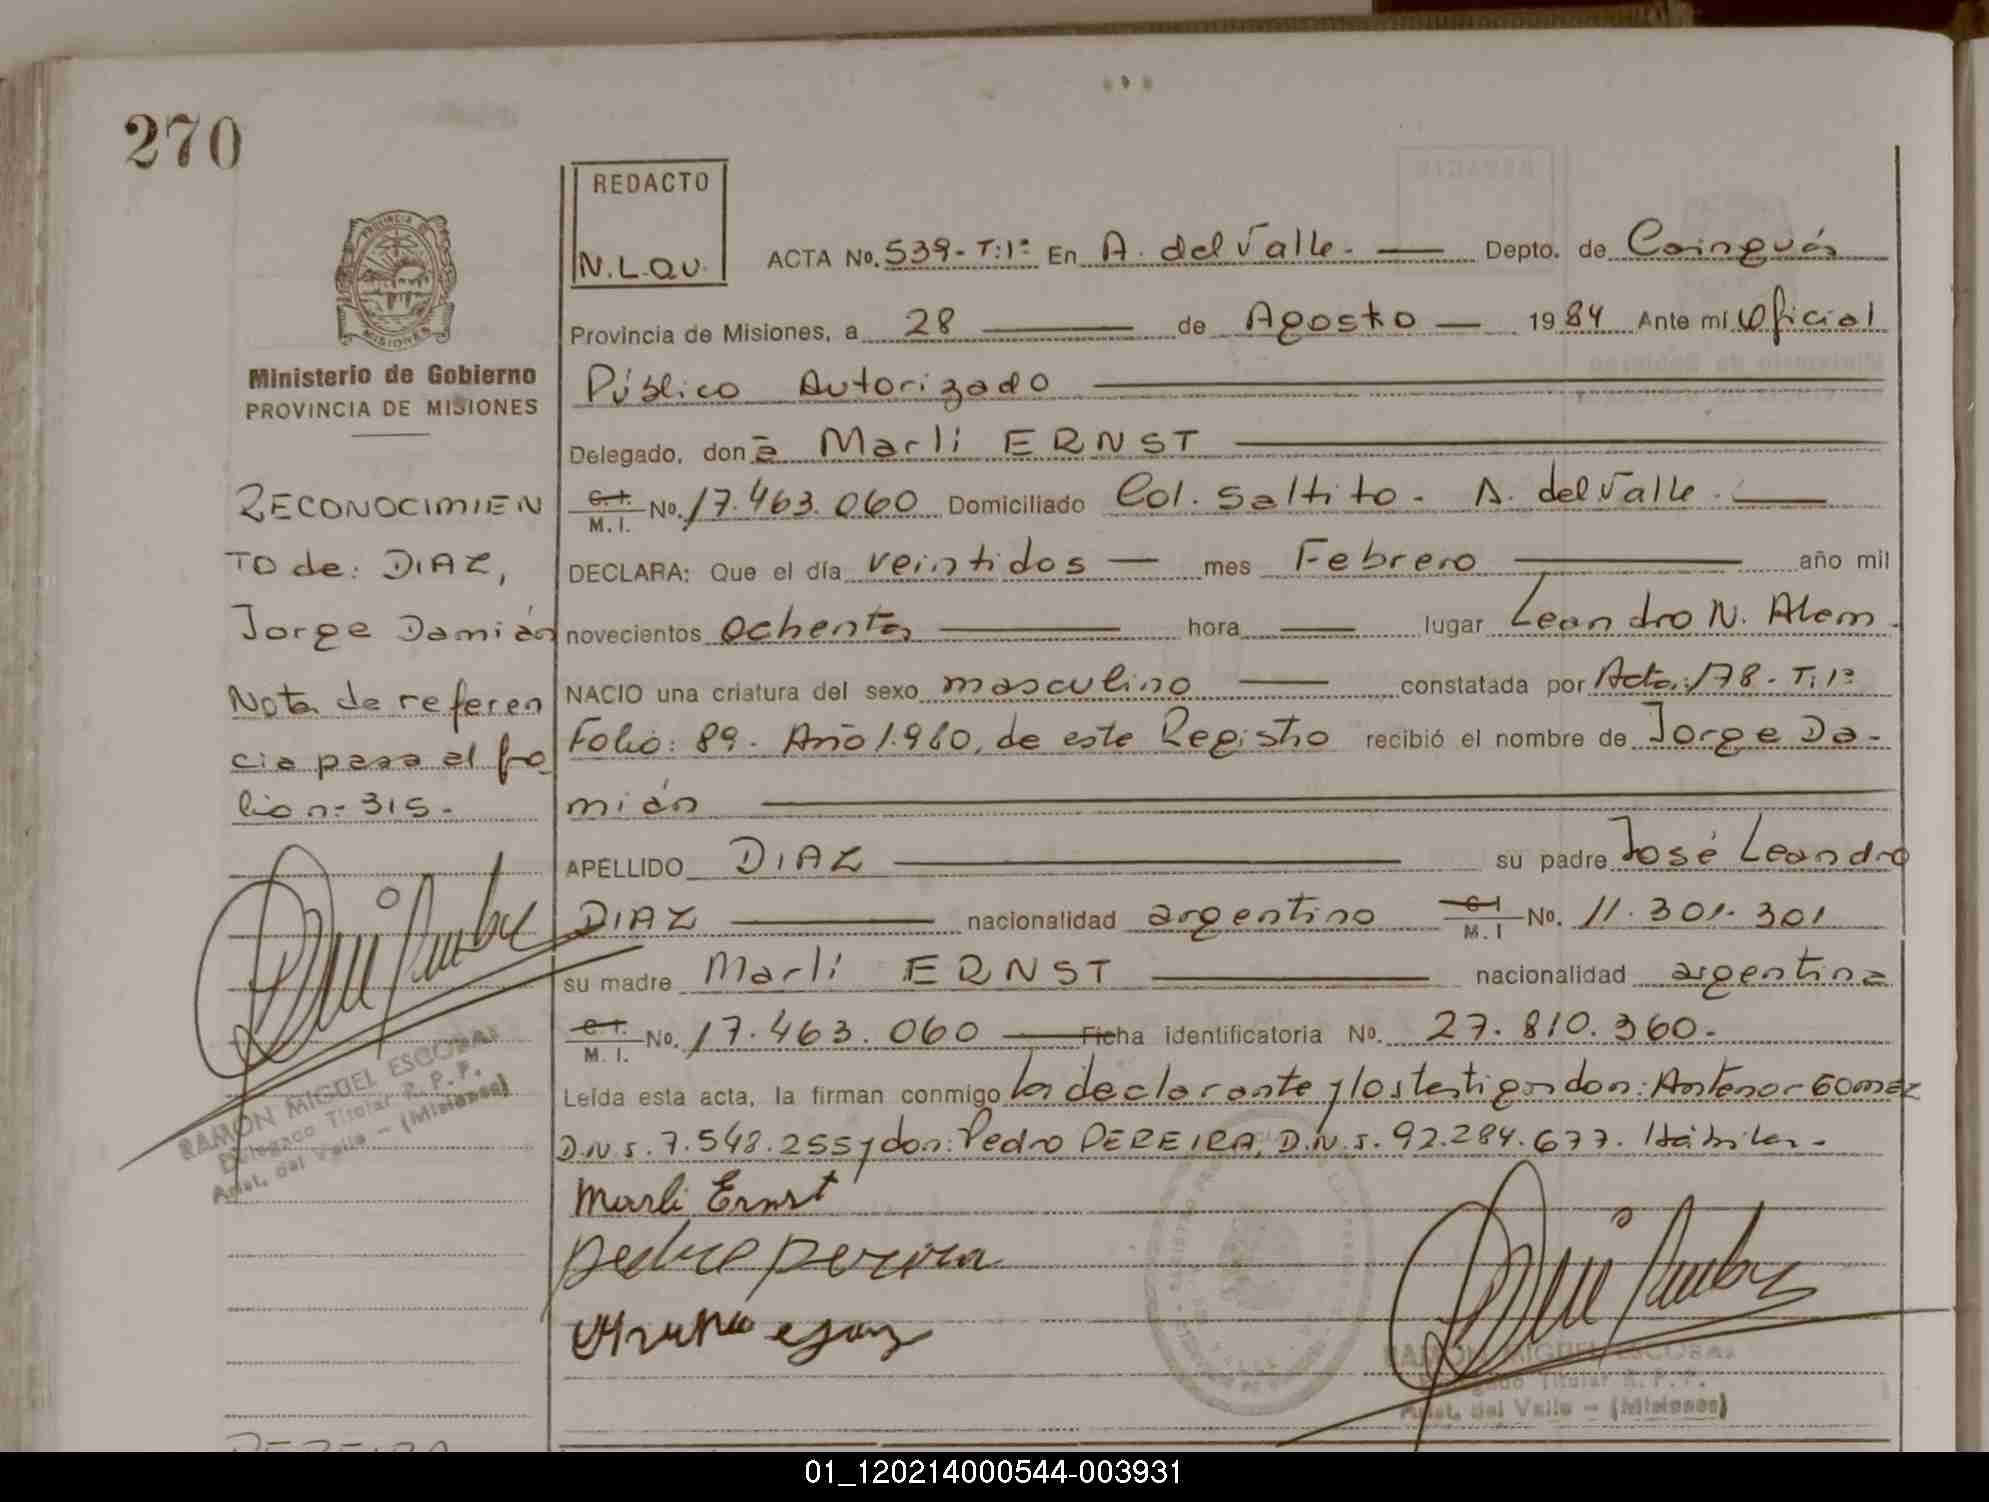 270
REDACTO
N.L.QU.
ACTA No. 539-T:1º En A. del Valle. Depto. de Cainguás
Provincia de Misiones, a 28 de Agosto 1984 Ante mí Oficial
Público Autorizado
Delegado, don ã Marli ERNST
C.I. M.I. No. 17.463.060 Domiciliado Col. Saltito. A. del Valle.
DECLARA: Que el día veintidos mes Febrero año mil
novecientos ochenta hora lugar Leandro N. Alem.
NACIO una criatura del sexo masculino constatada por Acta: 178-T:1º
Folio: 89. Año 1.980, de este Registro recibió el nombre de Jorge Da-
mián
APELLIDO DIAZ su padre José Leandro
DIAZ nacionalidad argentino C.I M.I No. 11.301.301
su madre Marli ERNST nacionalidad argentina
C.I. M.I. No. 17.463.060 Ficha identificatoria No. 27.810.360.
Leída esta acta, la firman conmigo la declarante y los testigos don: Antenor GOMEZ
D.N.I. 7.548.255 y don: Pedro PEREIRA, D.N.I. 92.284.677. Hábiles.
Marli Ernst
pedro pereira
PROVINCIA
MISIONES
Ministerio de Gobierno
PROVINCIA DE MISIONES
RECONOCIMIEN
TO de: DIAZ,
Jorge Damián
Nota de referen
cia pasa al fo
lio n: 315.
RAMON MIGUEL ESCOBAR
Delegado Titular R. P. P.
Arist. del Valle - (Misiones)
RAMON MIGUEL ESCOBAR
Delegado Titular R. P. P.
Arist. del Valle - (Misiones)
PEREIRA
01_120214000544-003931